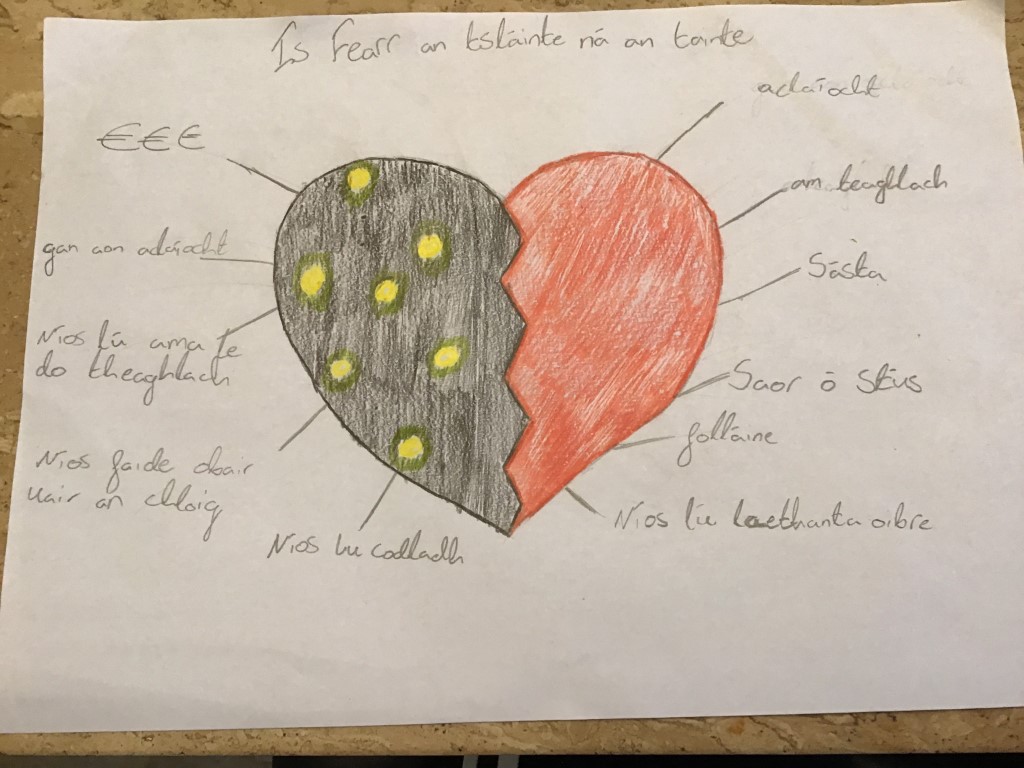 Is fearr an tsláinte ná an tainte
€€€
gan aon adaíocht
Níos lú ama le
do theaghlach
Níos faide obair
uair an chloig
Níos lu codladh
adaíocht
am teaghlach
Sásta
Saor ó Stéus
folláine
Níos lú laethanta oibre